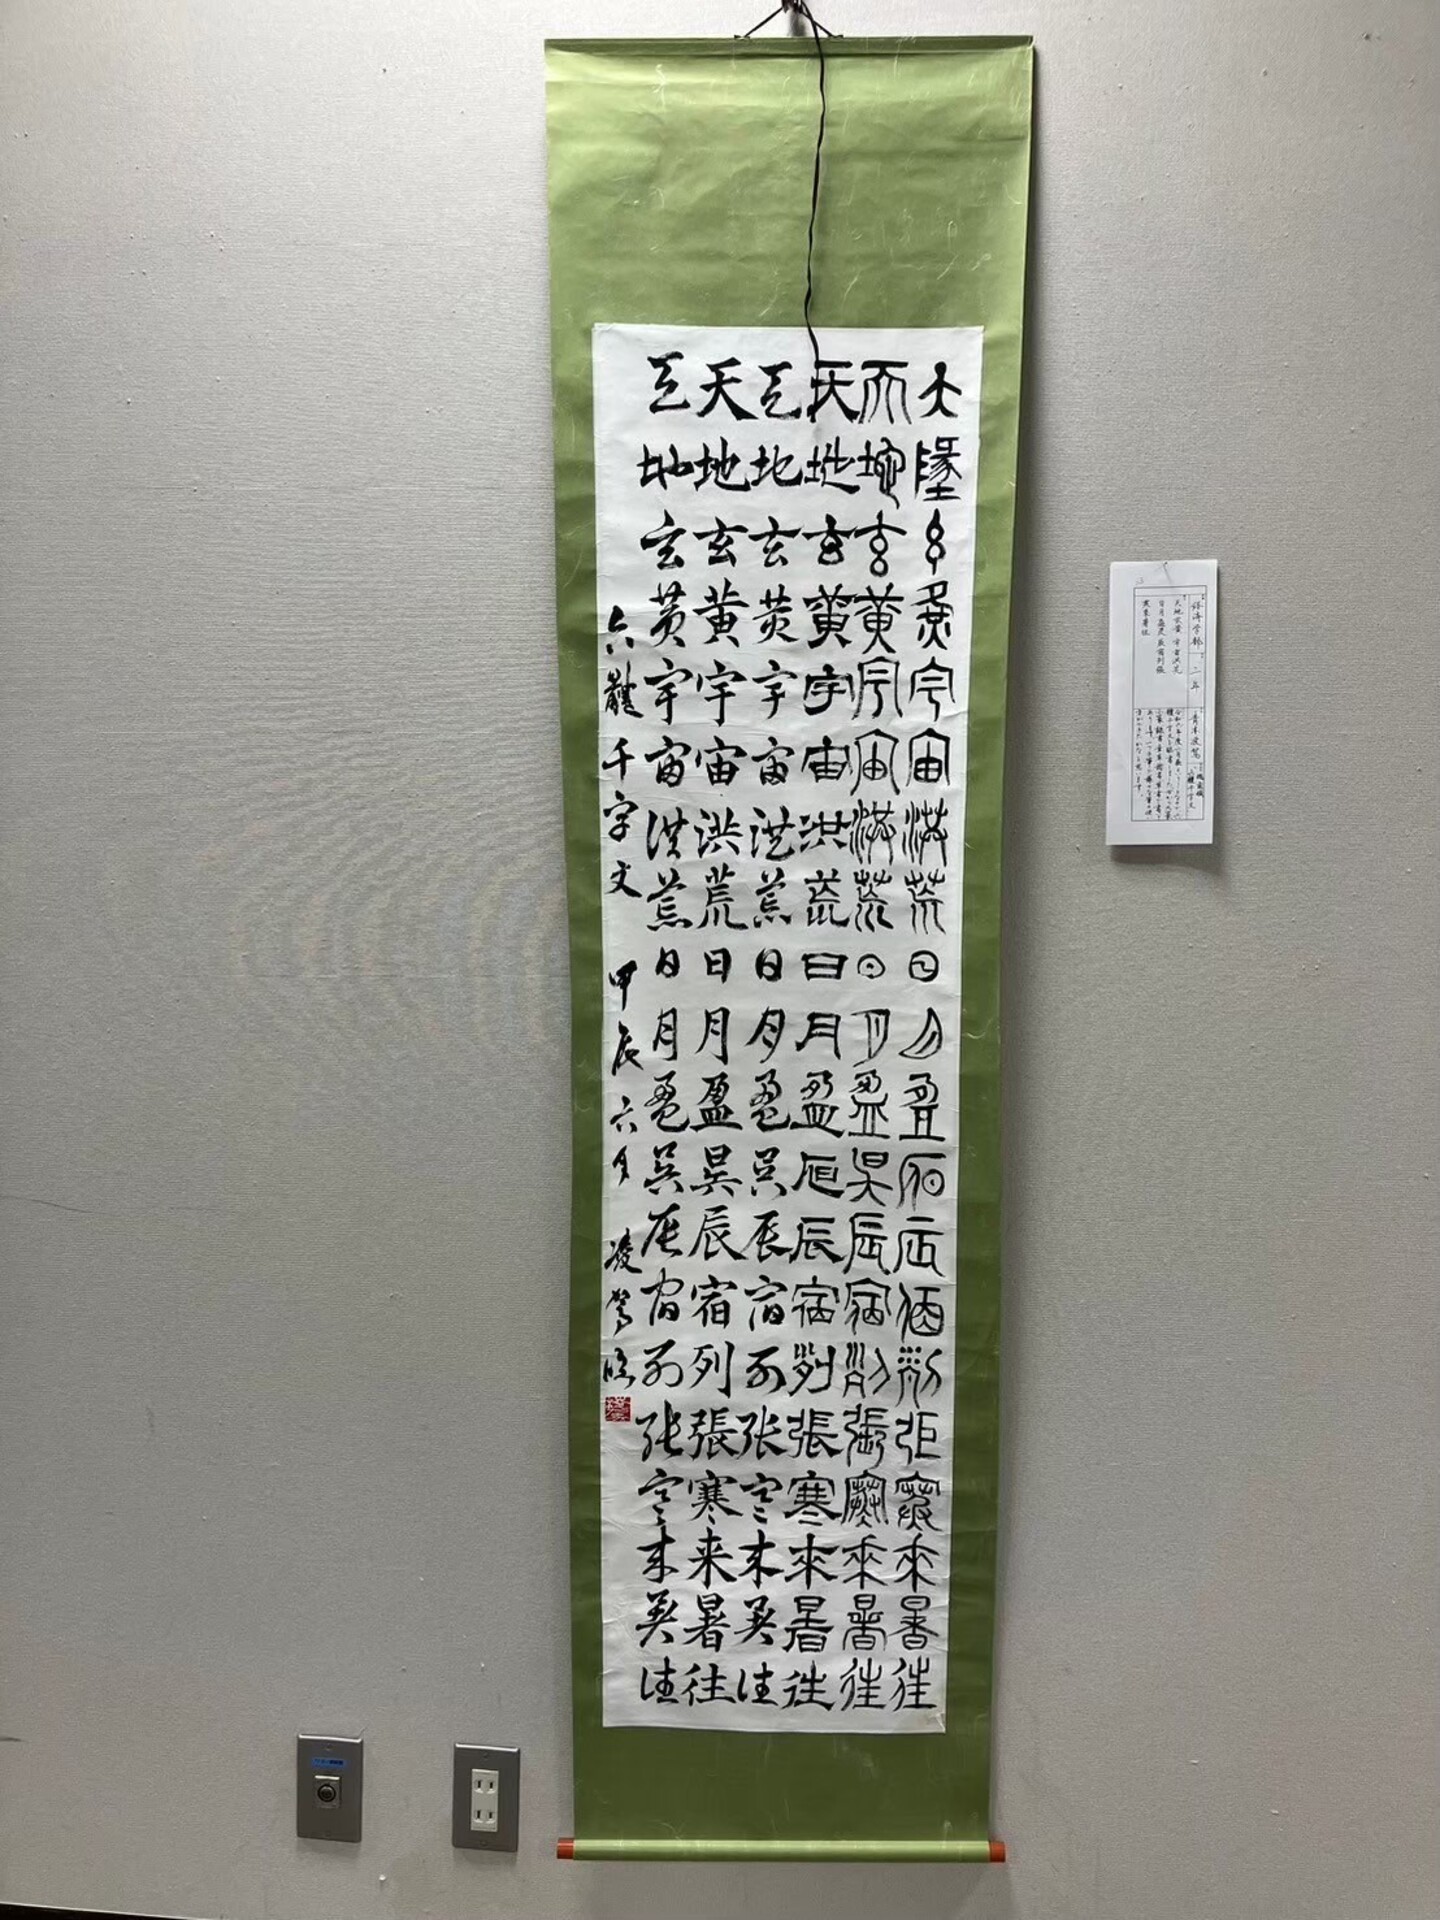 天地玄黄宇宙洪荒日月盈昃辰宿列張寒来暑往
天地玄黄宇宙洪荒日月盈昃辰宿列張寒来暑往
天地玄黄宇宙洪荒日月盈昃辰宿列張寒来暑往
天地玄黄宇宙洪荒日月盈昃辰宿列張寒来暑往
天地玄黄宇宙洪荒日月盈昃辰宿列張寒来暑往
天地玄黄宇宙洪荒日月盈昃辰宿列張寒来暑往
六體千字文 甲辰六月 凌驾臨
経済学部 二年
天地玄黄 宇宙洪荒
日月盈昃 辰宿列張
寒来暑往